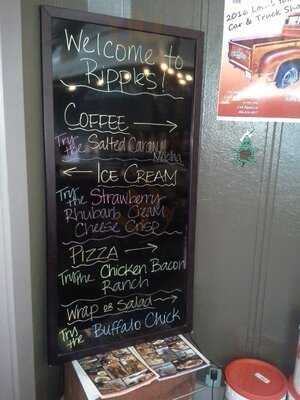 Welcome to
Ripples!
COFFEE →
Try the Salted Caramel
Mocha
← ICE CREAM
Try the Strawberry
Rhubarb Cream
Cheese Crisp
PIZZA →
Try the Chicken Bacon
Ranch
Wrap or Salad →
Try the Buffalo Chick
2016
Car & Truck Show